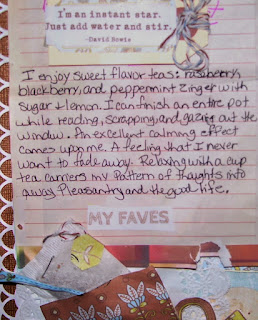 I'm an instant star.
Just add water and stir.
-David Bowie
I enjoy sweet flavor teas: raspberry,
blackberry, and peppermint zinger with
sugar + lemon. I can finish an entire pot
while reading, scrapping, and gazing out the
window. An excellent calming effect
comes upon me. A feeling that I never
want to fade away. Relaxing with a cup
tea carriers my pattern of thoughts into
away Pleasantry and the good life.
MY FAVES